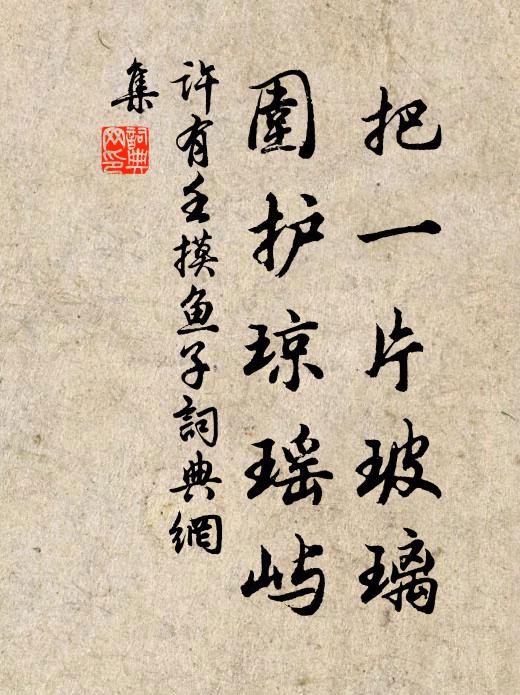 把一片玻璃
围护琼瑶屿
许有壬摸鱼子詞典網
集
詞典网印